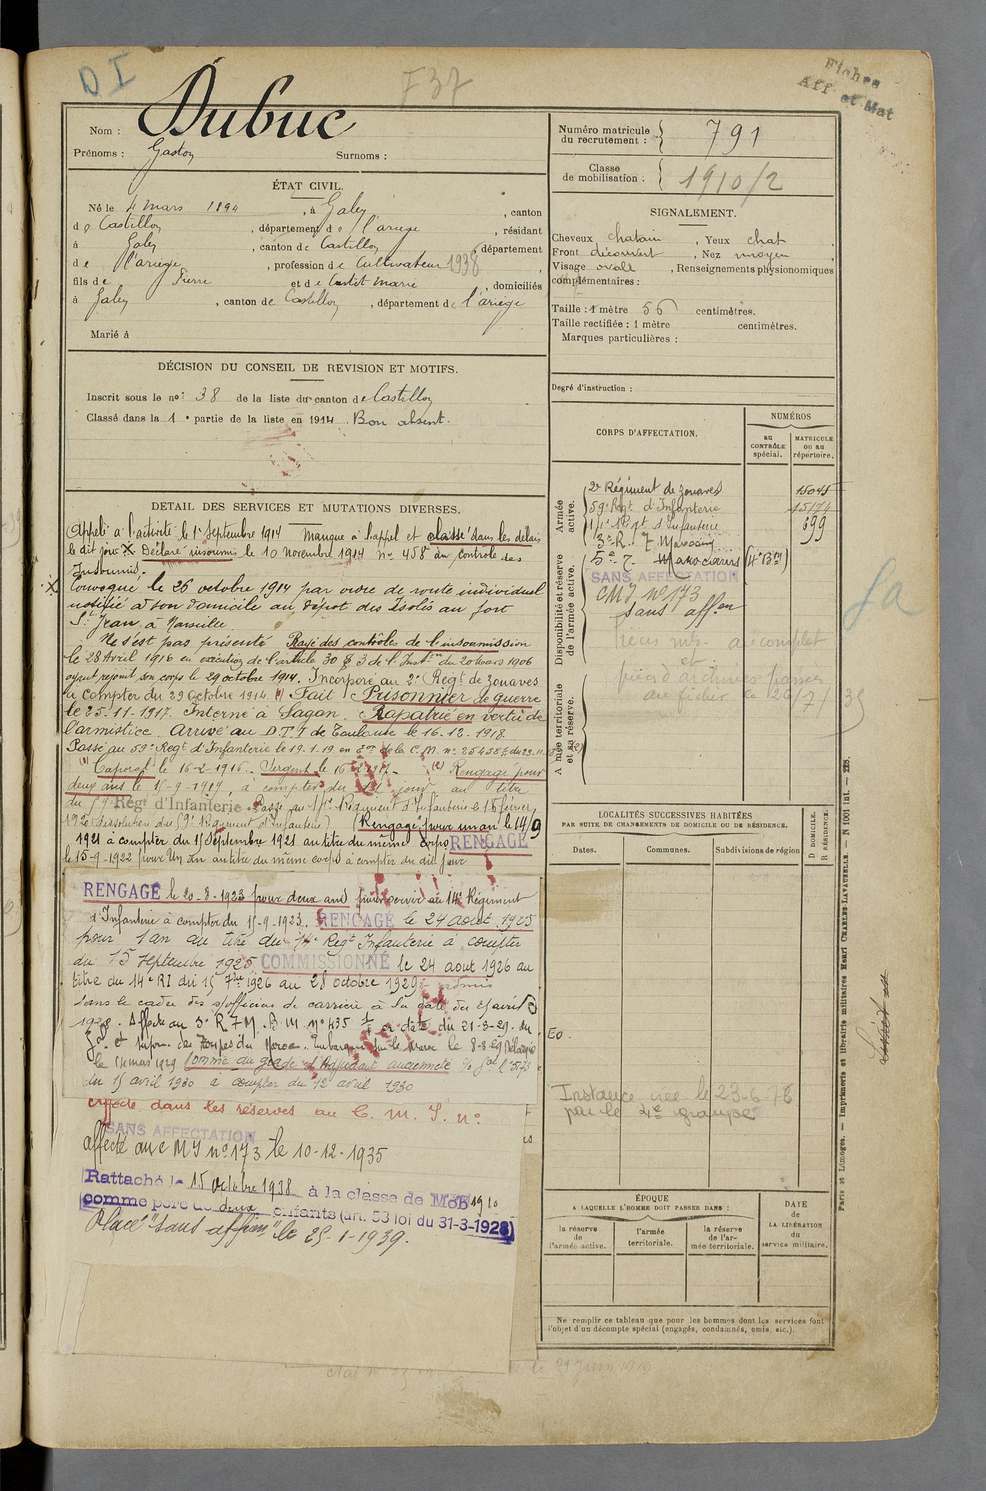 D I
F37
Fiches
Aff. et Mat
Nom : Dubuc
Prénoms : Gaston Surnoms :
ÉTAT CIVIL.
Né le 4 mars 1894, à Galey, canton
de Castillon, département de l'ariege, résidant
à Galey, canton de Castillon, département
de l'ariege, profession de Cultivateur 1938
fils de Pierre et de Castet Marie, domiciliés
à Galey, canton de Castillon, département de l'ariège
Marié à
DÉCISION DU CONSEIL DE REVISION ET MOTIFS.
Inscrit sous le no: 38 de la liste du canton de Castillon
Classé dans la 1e partie de la liste en 1914. Bon absent.
DETAIL DES SERVICES ET MUTATIONS DIVERSES.
Appelé à l'activité le 1er Septembre 1914 Manque à l'appel et classé dans les délais
le dit jour X Déclaré insoumis le 10 novembre 1914 No 458 du contrôle des
Insoumis.
X Convoqué le 26 octobre 1914 par ordre de route individuel
notifié à son domicile au dépôt des Isolés au fort
St Jean à Marseille.
Ne s'est pas présenté Rayé des controles de l'insoumission
le 28 Avril 1916 en exécution de l'article 30 § 3 de l'Inston du 20 Mars 1906
ayant rejoint son corps le 29 octobre 1914. Incorporé au 2e Regt de zouaves
à compter du 29 Octobre 1914 (1) Fait Prisonnier de guerre
le 25-11-1917. Interné à Sagan. Rapatrié en vertu de
l'armistice. Arrivé au D.T.I de Toulouse le 16.12.1918
Passé au 59e Regt d'Infanterie le 19.1.19 en on de la C.M. no
(1) Caporal le 16-2-1916. Sergent le (2) Rengagé pour
deux ans le 15-9-1919, à compter du dit jour au titre
du 59e Régt d'Infanterie. Passé au 14e Régiment d'Infanterie le 15 février
1920 (Dissolution du 59e Régiment d'Infanterie) (Rengagé pour un an le 14/9
1921 à compter du 15 Septembre 1921 au titre du même corps RENGAGÉ
le 15-9-1922 pour Un an au titre du même corps à compter du dit jour
RENGAGÉ le 20-8-1923 pour deux ans pour servir au 14e Régiment
d'Infanterie à compter du 15-9-1923. RENGAGÉ le 24 aout 1925
pour 1 an au titre du 14e Regt Infanterie à compter
du 15 septembre 1925 COMMISSIONNÉ le 24 aout 1926 au
titre du 14e RI du 15 7bre 1926 au 28 octobre 1929 admis
dans le cadre des s/officiers de carrière à la date du 15 avril
1928. Affecté au 3e R.T.M. B.M. No 435 en date du 21-3-29. du
Gal Ct Supr. des Troupes du Maroc. Embarqué pour le Maroc le 8-3-29
le 14 mars 1929 Nommé au grade d'Adjudant
du 15 avril 1930 à compter du 12 avril 1930
affecté dans les réserves au C. M. I. no
SANS AFFECTATION
affecté au C M I no 173 le 10-12-1935
Rattaché le 15 Octobre 1938 à la classe de MOB 1910
comme père de deux enfants (art. 53 loi du 31-3-1928)
Placé "sans affon" le 25-1-1939.
Numéro matricule
du recrutement : 791
Classe
de mobilisation : 1910/2
SIGNALEMENT.
Cheveux chatain, Yeux chat
Front découvert, Nez moyen
Visage ovale, Renseignements physionomiques
complémentaires :
Taille : 1 mètre 56 centimètres.
Taille rectifiée : 1 mètre centimètres.
Marques particulières :
Degré d'instruction :
CORPS D'AFFECTATION.
NUMÉROS
au CONTRÔLE spécial.
MATRICULE ou au répertoire.
Armée active.
2e Régiment de zouaves 15045
59e Regt d'Infanterie 15174
14e Regt d'Infanterie 399
3e R. T. Marocains
Disponibilité et réserve de l'armée active.
5e T. Marocains (4e Bon)
SANS AFFECTATION
CMI no 173
sans affon
Armée territoriale et sa réserve.
au complet
et
pièces d'archives passées
au fichier le 26/7/35
LOCALITÉS SUCCESSIVES HABITÉES
PAR SUITE DE CHANGEMENTS DE DOMICILE OU DE RÉSIDENCE.
Dates. Communes. Subdivisions de région
D DOMICILE.
R RÉSIDENCE.
Eo.
Instance créé le 23-6-78
par le 4e groupe
ÉPOQUE
A LAQUELLE L'HOMME DOIT PASSER DANS :
DATE
de
LA LIBÉRATION
du
service militaire.
la réserve de l'armée active.
l'armée territoriale.
la réserve de l'armée territoriale.
Ne remplir ce tableau que pour les hommes dont les services font
l'objet d'un décompte spécial (engagés, condamnés, omis, etc.).
Paris et Limoges. — Imprimerie et librairie militaires Henri CHARLES-LAVAUZELLE. — N 1001 int. — 228.
le 21 juin 1919